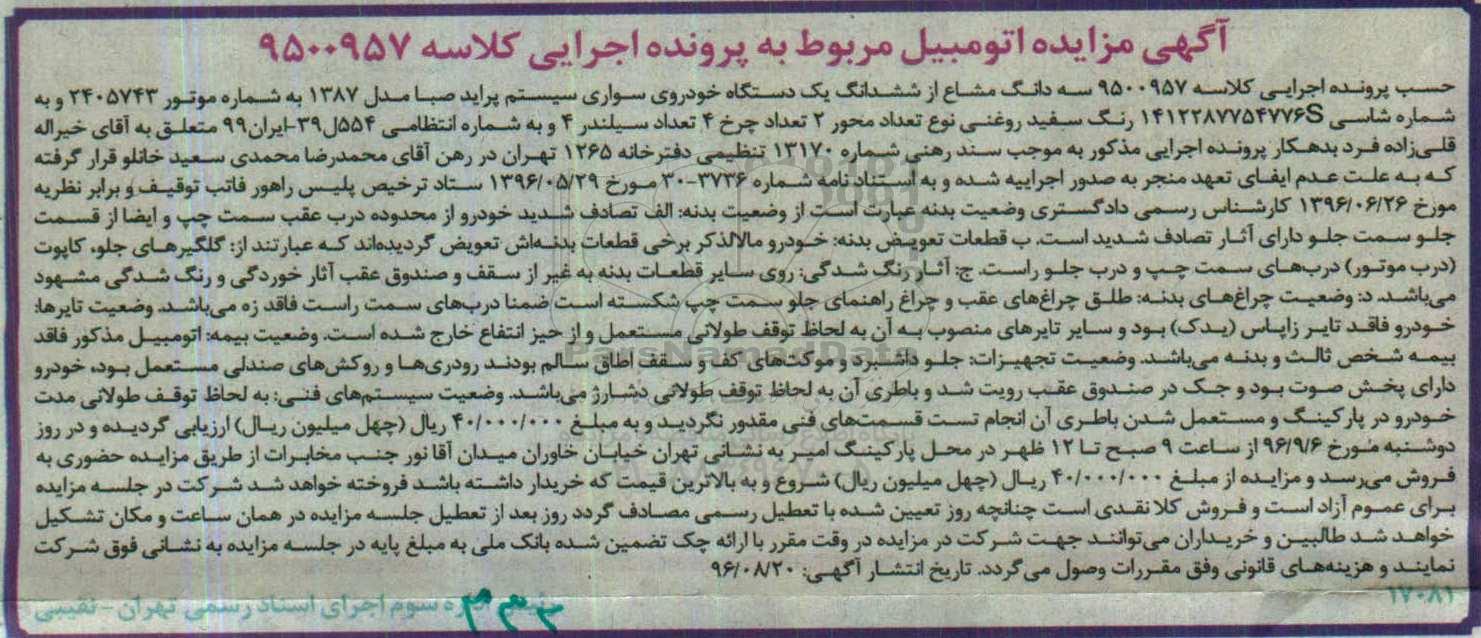 آگهی مزایده اتومبیل مربوط به پرونده اجرایی کلاسه ۹۵۰۰۹۵۷
حسب پرونده اجرایی کلاسه ۹۵۰۰۹۵۷ سه دانگ مشاع از ششدانگ یک دستگاه خودروی سواری سیستم پراید صبا مدل ۱۳۸۷ به شماره موتور ۲۴۰۵۷۴۳ و به
شماره شاسی S۱۴۱۲۲۸۷۷۵۴۷۷۶ رنگ سفید روغنی نوع تعداد محور ۲ تعداد چرخ ۴ تعداد سیلندر ۴ و به شماره انتظامی ۵۵۴ل۳۹-ایران۹۹ متعلق به آقای خیراله
قلی‌زاده فرد بدهکار پرونده اجرایی مذکور به موجب سند رهنی شماره ۱۳۱۷۰ تنظیمی دفترخانه ۱۲۶۵ تهران در رهن آقای محمدرضا محمدی سعید خانلو قرار گرفته
که به علت عدم ایفای تعهد منجر به صدور اجراییه شده و به استناد نامه شماره ۳۷۳۶-۳۰ مورخ ۱۳۹۶/۰۵/۲۹ ستاد ترخیص پلیس راهور فاتب توقیف و برابر نظریه
مورخ ۱۳۹۶/۰۶/۲۶ کارشناس رسمی دادگستری وضعیت بدنه عبارت است از وضعیت بدنه: الف تصادف شدید خودرو از محدوده درب عقب سمت چپ و ایضا از قسمت
جلو سمت جلو دارای آثار تصادف شدید است. ب قطعات تعویض بدنه: خودرو مالالذکر برخی قطعات بدنه‌اش تعویض گردیده‌اند که عبارتند از: گلگیرهای جلو، کاپوت
(درب موتور) درب‌های سمت چپ و درب جلو راست. ج: آثار رنگ شدگی: روی سایر قطعات بدنه به غیر از سقف و صندوق عقب آثار خوردگی و رنگ شدگی مشهود
می‌باشد. د: وضعیت چراغ‌های بدنه: طلق چراغ‌های عقب و چراغ راهنمای جلو سمت چپ شکسته است ضمنا درب‌های سمت راست فاقد زه می‌باشد. وضعیت تایرها:
خودرو فاقد تایر زاپاس (یدک) بود و سایر تایرهای منصوب به آن به لحاظ توقف طولانی مستعمل و از حیز انتفاع خارج شده است. وضعیت بیمه: اتومبیل مذکور فاقد
بیمه شخص ثالث و بدنه می‌باشد. وضعیت تجهیزات: جلو داشبرد و موکت‌های کف و سقف اطاق سالم بودند رودری‌ها و روکش‌های صندلی مستعمل بود، خودرو
دارای پخش صوت بود و جک در صندوق عقب رویت شد و باطری آن به لحاظ توقف طولانی دشارژ می‌باشد. وضعیت سیستم‌های فنی: به لحاظ توقف طولانی مدت
خودرو در پارکینگ و مستعمل شدن باطری آن انجام تست قسمت‌های فنی مقدور نگردید و به مبلغ ۴۰/۰۰۰/۰۰۰ ریال (چهل میلیون ریال) ارزیابی گردیده و در روز
دوشنبه مورخ ۹۶/۹/۶ از ساعت ۹ صبح تا ۱۲ ظهر در محل پارکینگ امیر به نشانی تهران خیابان خاوران میدان آقا نور جنب مخابرات از طریق مزایده حضوری به
فروش می‌رسد و مزایده از مبلغ ۴۰/۰۰۰/۰۰۰ ریال (چهل میلیون ریال) شروع و به بالاترین قیمت که خریدار داشته باشد فروخته خواهد شد شرکت در جلسه مزایده
برای عموم آزاد است و فروش کلا نقدی است چنانچه روز تعیین شده با تعطیل رسمی مصادف گردد روز بعد از تعطیل جلسه مزایده در همان ساعت و مکان تشکیل
خواهد شد طالبین و خریداران می‌توانند جهت شرکت در مزایده در وقت مقرر با ارائه چک تضمین شده بانک ملی به مبلغ پایه در جلسه مزایده به نشانی فوق شرکت
نمایند و هزینه‌های قانونی وفق مقررات وصول می‌گردد. تاریخ انتشار آگهی: ۹۶/۰۸/۲۰
۱۷۰۸۱
اداره سوم اجرای اسناد رسمی تهران - نقیبی
ParsNamadData